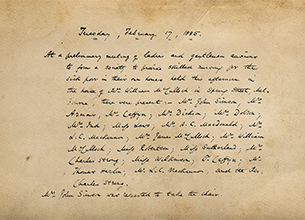 Tuesday, February 17, 1885.
At a preliminary meeting of ladies and gentlemen anxious
to form a society to provide skilled nursing for the
sick poor in their own homes held this afternoon in
the house of Mrs. William McCulloch in Spring Street, Mel-
bourne, there were present: Mr. John Simon, Mr.
Mrs. Caffyn, Mr. Dickson, Mr.
Mrs. Miss Mr. A. C. Macdonald, Mr.
H. C. Mackinnon, Mr. James McCulloch, Mr. William
McCulloch, Miss Robertson, Miss Sutherland, Mr.
Charles Strong, Miss Wilkinson, Dr. Caffyn, Mr.
Thomas Mr. Mackinnon, and the Rev.
Charles Strong.
Mr. John Simon was requested to take the chair.